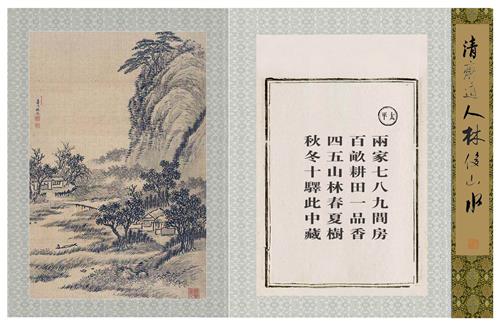 清道人林俊山水
太平
兩家七八九間房
百畝耕田一品香
四五山林春夏樹
秋冬十驛此中藏